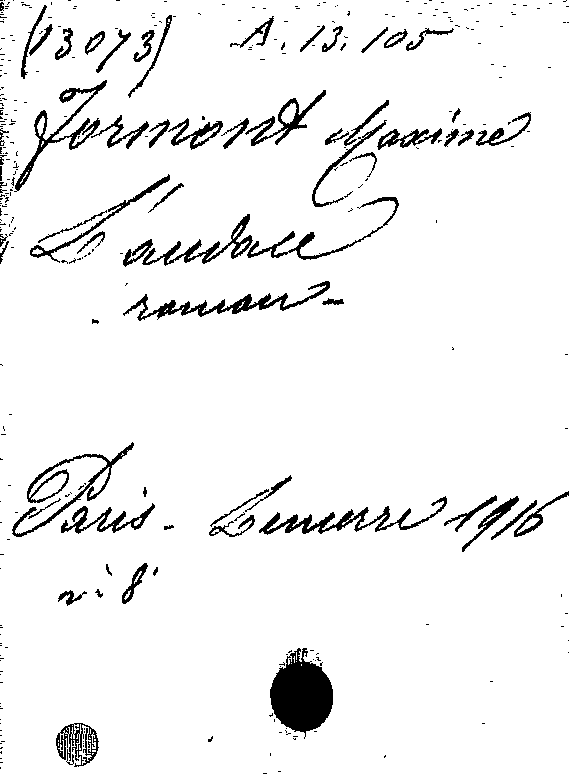 (13073) A.13.105
Formont Maxime
L'audace
roman -
Paris - Lemerre 1916
in 8°